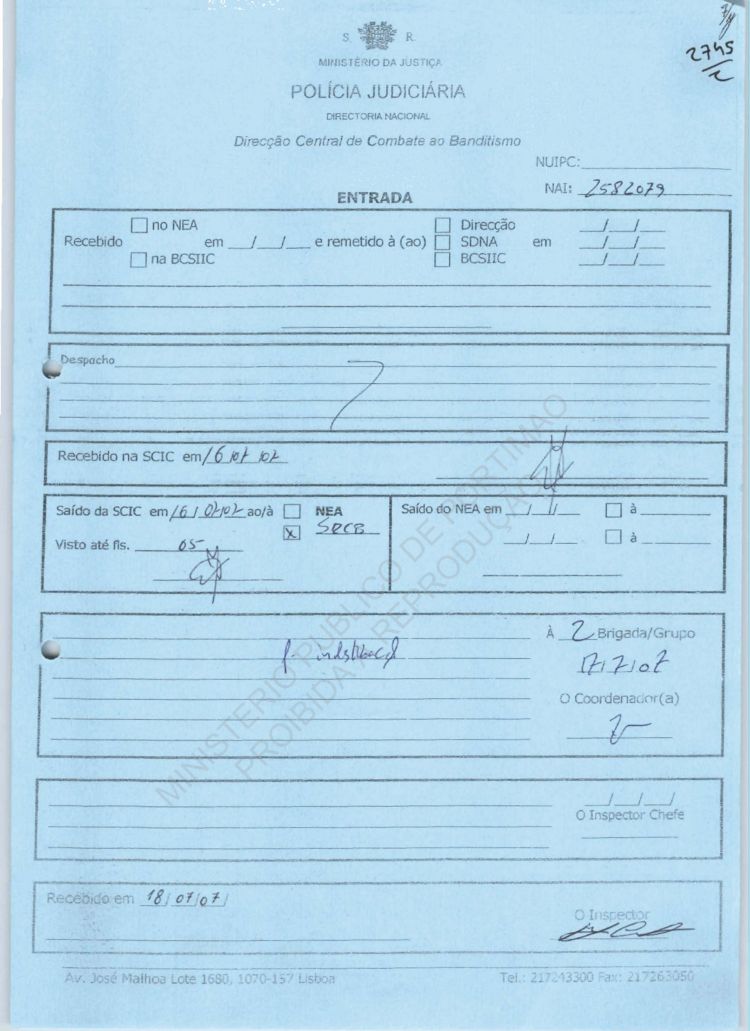 2745
2
S. R.
MINISTÉRIO DA JUSTIÇA
POLÍCIA JUDICIÁRIA
DIRECTORIA NACIONAL
Direcção Central de Combate ao Banditismo
NUIPC:
NAI: 2582079
ENTRADA
no NEA Direcção / /
Recebido em / / e remetido à (ao) SDNA em / /
na BCSIIC BCSIIC / /
Despacho
Recebido na SCIC em 16/07/07
Saído da SCIC em 16/07/07 ao/à NEA Saído do NEA em / / à
x SRCB
Visto até fls. 05 / / à
À 2 Brigada/Grupo
17/7/07
O Coordenador(a)
/ /
O Inspector Chefe
Recebido em 18/07/07/
O Inspector
Av. José Malhoa Lote 1680, 1070-157 Lisboa Tel.: 217243300 Fax: 217263050
MINISTERIO PUBLICO DE PORTIMAO
PROIBIDA A REPRODUÇÃO